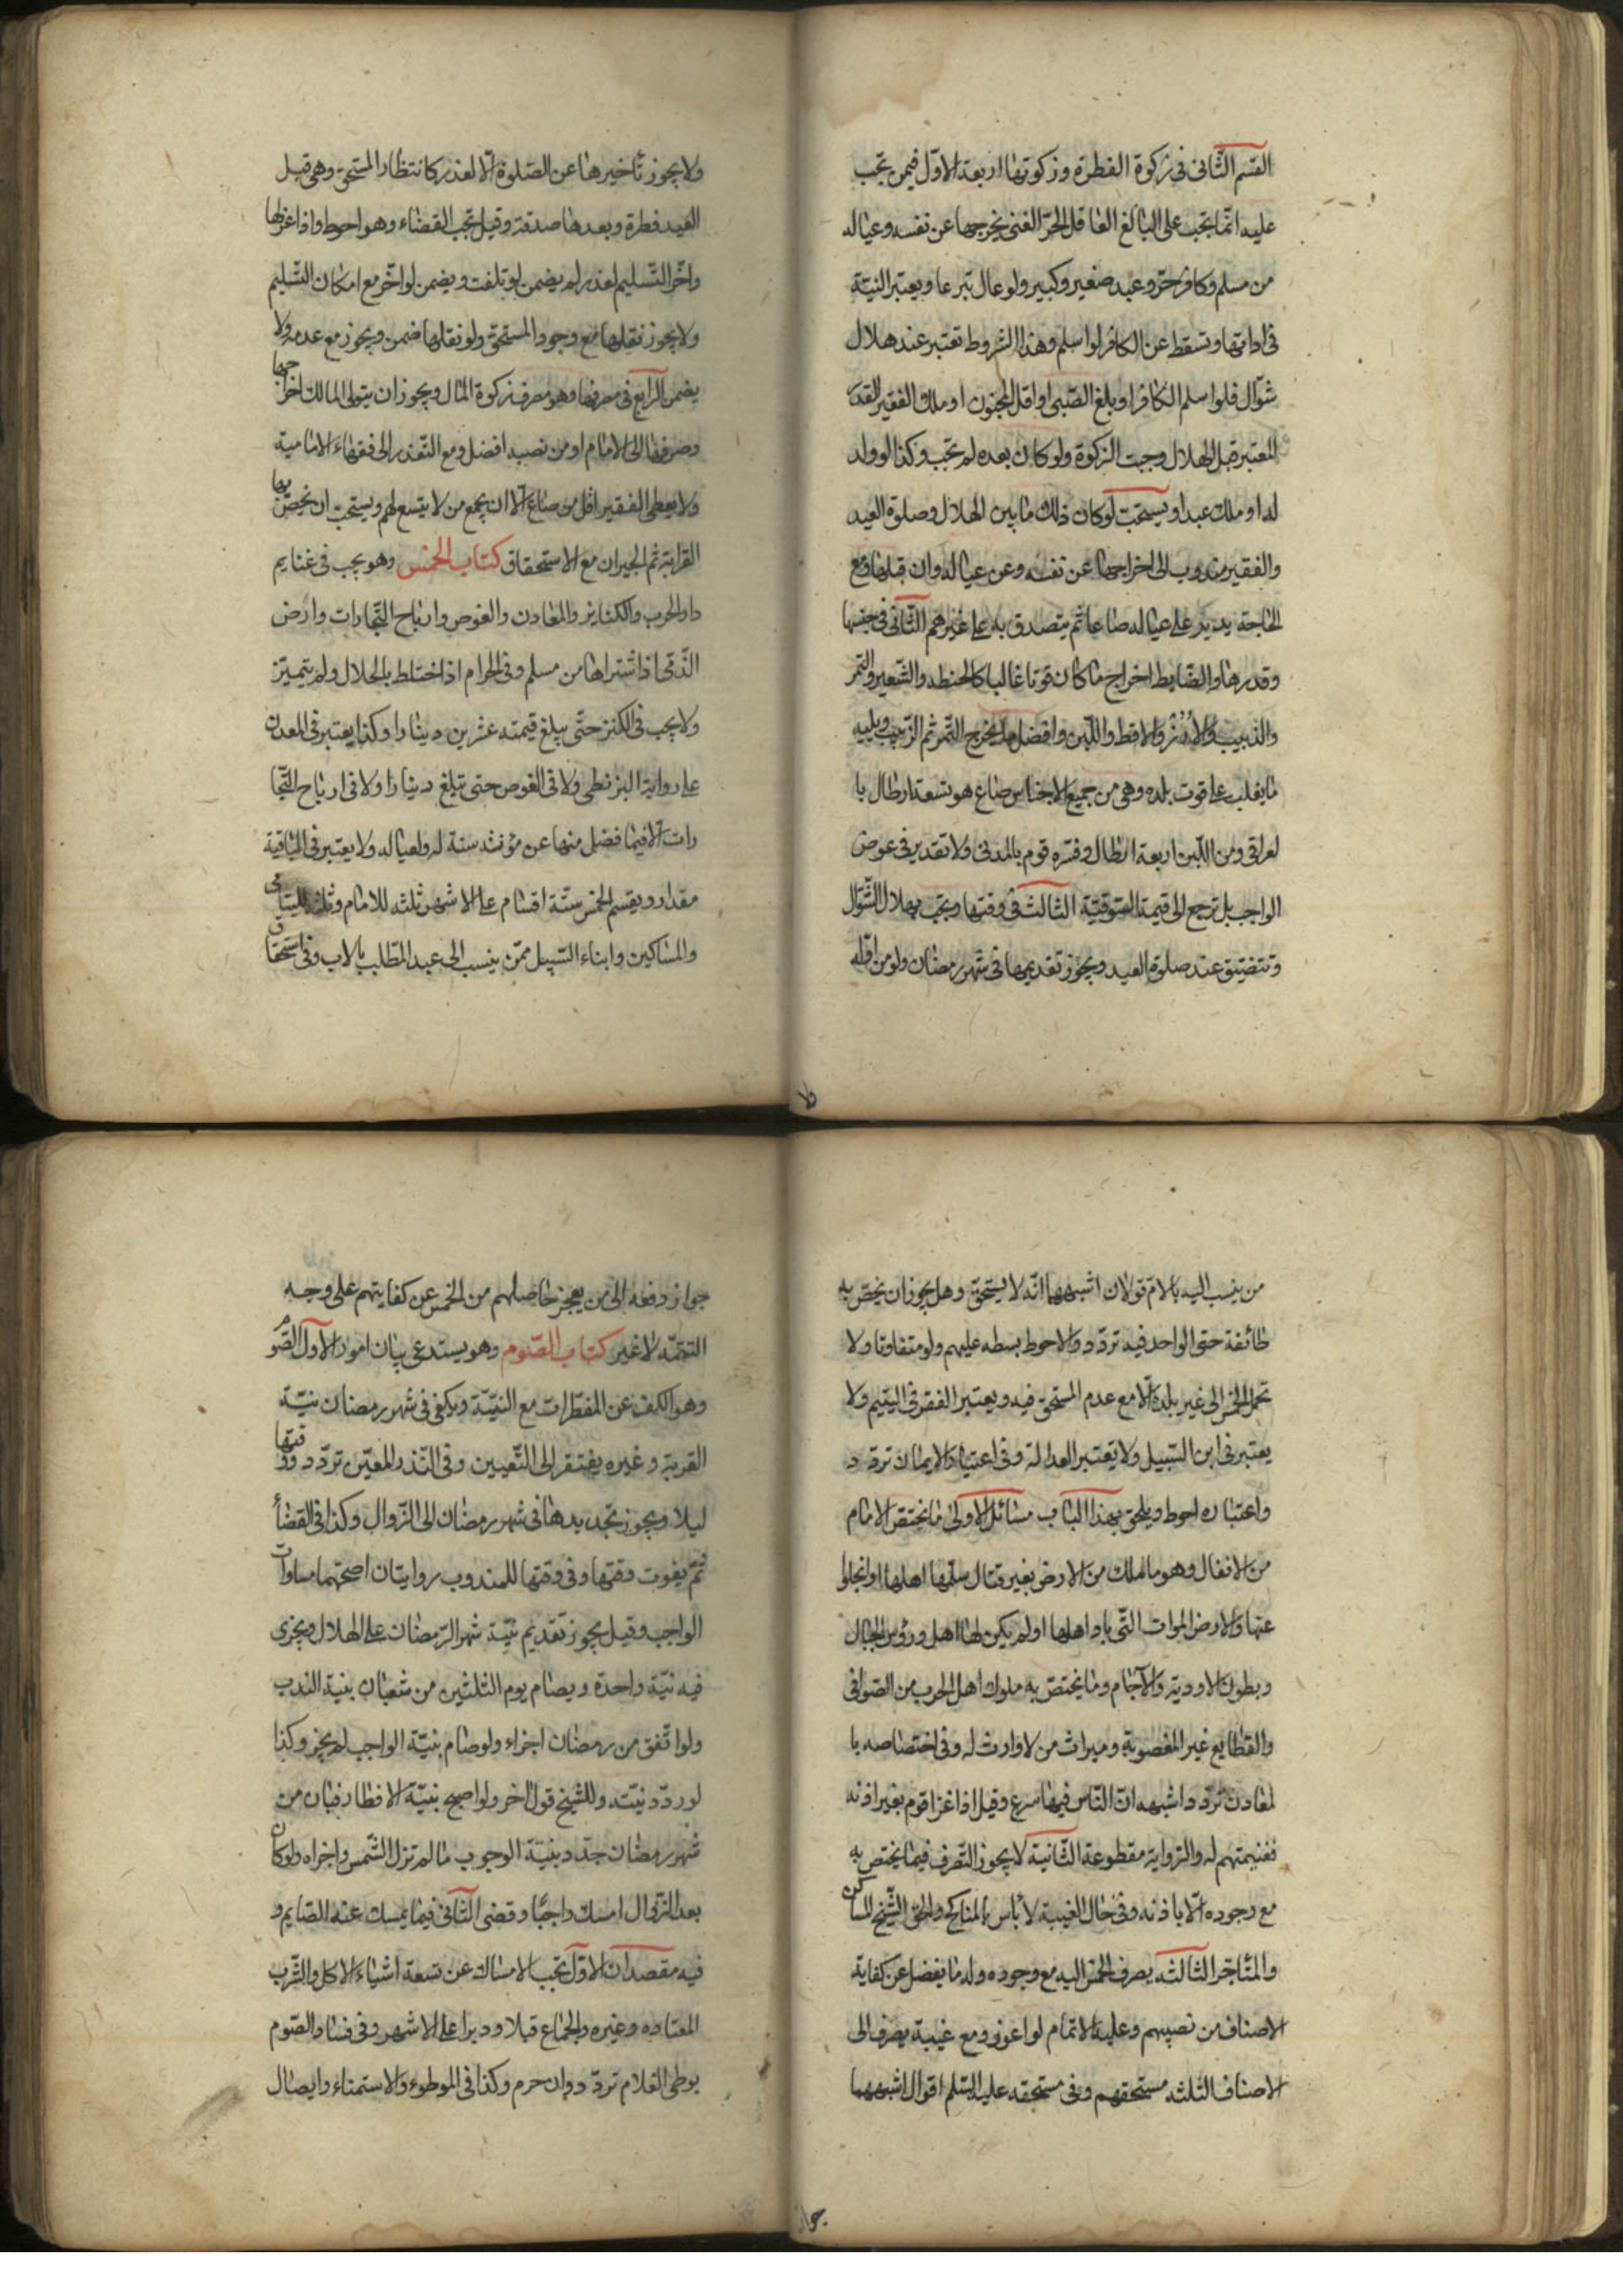 القسم الثانى فى زكوة الفطرة وزكوتها اربعة الاول فيمن تجب
عليه انما تجب على البالغ العاقل الحر الغنى يخرجها عن نفسه وعياله
من مسلم وكافر حر وعبد صغير وكبير ولو عال تبرعا ويعتبر النية
فى ادائها وتسقط عن الكافر لو اسلم وهذا الشروط تعتبر عند هلال
شوال فلو اسلم الكافر او بلغ الصبى او اقل المجنون او ملك الفقير القدر
المعتبر قبل الهلال وجبت الزكوة ولو كان بعده لم تجب وكذا لو ولد
له او ملك عبدا ويستحب لو كان ذلك ما بين الهلال وصلوة العيد
والفقير مندوب الى اخراجها عن نفسه وعن عياله وان قبلها ومع
الحاجة يدير على عياله صاعا ثم يتصدق به على غيرهم الثانى فى جنسها
وقدرها والضابط اخراج ما كان قوتا غالبا كالحنطه والشعير والتمر
والذبيب والارز والاقط واللبن وافضل ما يخرج التمر ثم الزبيب ويليه
ما يغلب على قوت بلده وهى من جميع الاجناس صاع هو تسعة ارطال با
لعراقى ومن اللبن اربعة ارطال وفسره قوم بالمدنى ولا تقدير فى عوض
الواجب بل ترجع الى قيمة السوقية الثالث فى وقتها وتجب بهلال الشوال
وتتضيق عند صلوة العيد ويجوز تقديمها فى شهر رمضان ولو من اوله
ولا يجوز تاخيرها عن الصلوة الا لعذر كانتظار المستحق وهى قبل
العيد فطرة وبعدها صدقة وقيل تجب القضاء وهو احوط واذا عزلها
واخر التسليم لعذر لم يضمن لو تلفت ويضمن لو اخر مع امكان التسليم
ولا يجوز نقلها مع وجود المستحق ولو نقلها ضمن ويجوز مع عدمه ولا
يضمن الرابع فى مصرفها وهو مصرف زكوة المال ويجوز ان يتولى المالك اخراجها
وصرفها الى الامام او من نصبه افضل ومع التعذر الى فقهاء الامامية
ولا يعطى الفقير اقل من صاع الا ان يجمع من لا يتسع لهم ويستحب ان يخص بها
القرابة ثم الجيران مع الاستحقاق كتاب الخمس وهو يجب فى غنايم
دار الحرب والكنايز والمعادن والغوص وارباح التجارات وارض
الذمى اذا اشتراها من مسلم وفى الحرام اذا اختلط بالحلال ولم يتميز
ولا يجب فى الكنز حتى يبلغ قيمته عشرين دينارا وكذا يعتبر فى المعدن
على رواية البزنطى ولا فى الغوص حتى تبلغ دينارا ولا فى ارباح التجا
رات الا فيما فضل منها عن مؤنث سنة له ولعياله ولا يعتبر فى الباقية
مقدار ويقسم الخمس ستة اقسام على الاشهر ثلثه للامام وثلثه لليتامى
والمساكين وابناء السبيل ممن ينسب الى عبد المطلب بالاب وفى استحقاق
من ينسب اليه بالام قولان اشبههما انه لا يستحق وهل يجوز ان يختص به
طائفة حتى الواحد فيه تردد والاحوط بسطه عليهم ولو متفاوتا ولا
تحمل الخمس الى غير بلده الا مع عدم المستحق فيه ويعتبر الفقر فى اليتيم ولا
يعتبر فى ابن السبيل ولا يعتبر العدالة وفى اعتبار الايمان تردد
واعتباره احوط ويلحق بهذا الباب مسائل الاولى ما يختص الامام
من الانفال وهو ما ملك من الارض بغير قتال سلمها اهلها او انجلوا
عنها والارض الموات التى باد اهلها او لم يكن لها اهل ورؤس الجبال
وبطون الاودية والآجام وما يختص به ملوك اهل الحرب من الصوافى
والقطايع غير المغصوبة وميراث من لا وارث له وفى اختصاصه با
لمعادن تردد اشبهه ان الناس فيها سرع وقيل اذا غزا قوم بغير اذنه
فغنيمتهم له والرواية مقطوعة الثانية لا يجوز التصرف فيما يختص به
مع وجوده الا باذنه وفى حال الغيبة لا باس بالمناكح والحق الشيخ المساكن
والمتاجر الثالثه يصرف الخمس اليه مع وجوده وله ما يفضل عن كفاية
الاصناف من نصيبهم وعليه الاتمام لو اعوز ومع غيبة يصرف الى
الاصناف الثلثه مستحقهم وفى مستحقه عليه السلم اقوال اشبهها
جواز دفعه الى من يعجز حاصلهم من الخمس عن كفايتهم على وجه
التتمه لا غير كتاب الصوم وهو يستدعى بيان امور الاول الصوم
وهو الكف عن المفطرات مع النية ويكفى فى شهر رمضان نية
القربة وغيره يفتقر الى التعيين وفى النذر المعين تردد وقتها
ليلا ويجوز تجديدها فى شهر رمضان الى الزوال وكذا فى القضا
ثم يفوت وقتها وفى وقتها للمندوب روايتان اصحهما مساوات
الواجب وقيل يجوز تقديم نية شهر الرمضان على الهلال ويجزى
فيه نية واحدة ويصام يوم الثلثين من شعبان بنية الندب
ولو اتفق من رمضان اجزاء ولو صام بنية الواجب لم يجز وكذا
لو ردد نيته وللشيخ قول اخر ولو اصبح بنية الافطار فبان من
شهر رمضان جدد بنية الوجوب ما لم تزل الشمس واجزاه ولو كان
بعد الزوال امسك واجبا وقضى الثانى فيما يمسك عنه الصايم و
فيه مقصدان الاول تجب الامساك عن تسعة اشياء الاكل والشرب
المعتاده وغيره والجماع قبلا ودبرا على الاشهر وفى فساد الصوم
بوطى الغلام تردد وان حرم وكذا فى الموطوء والاستمناء وايصال